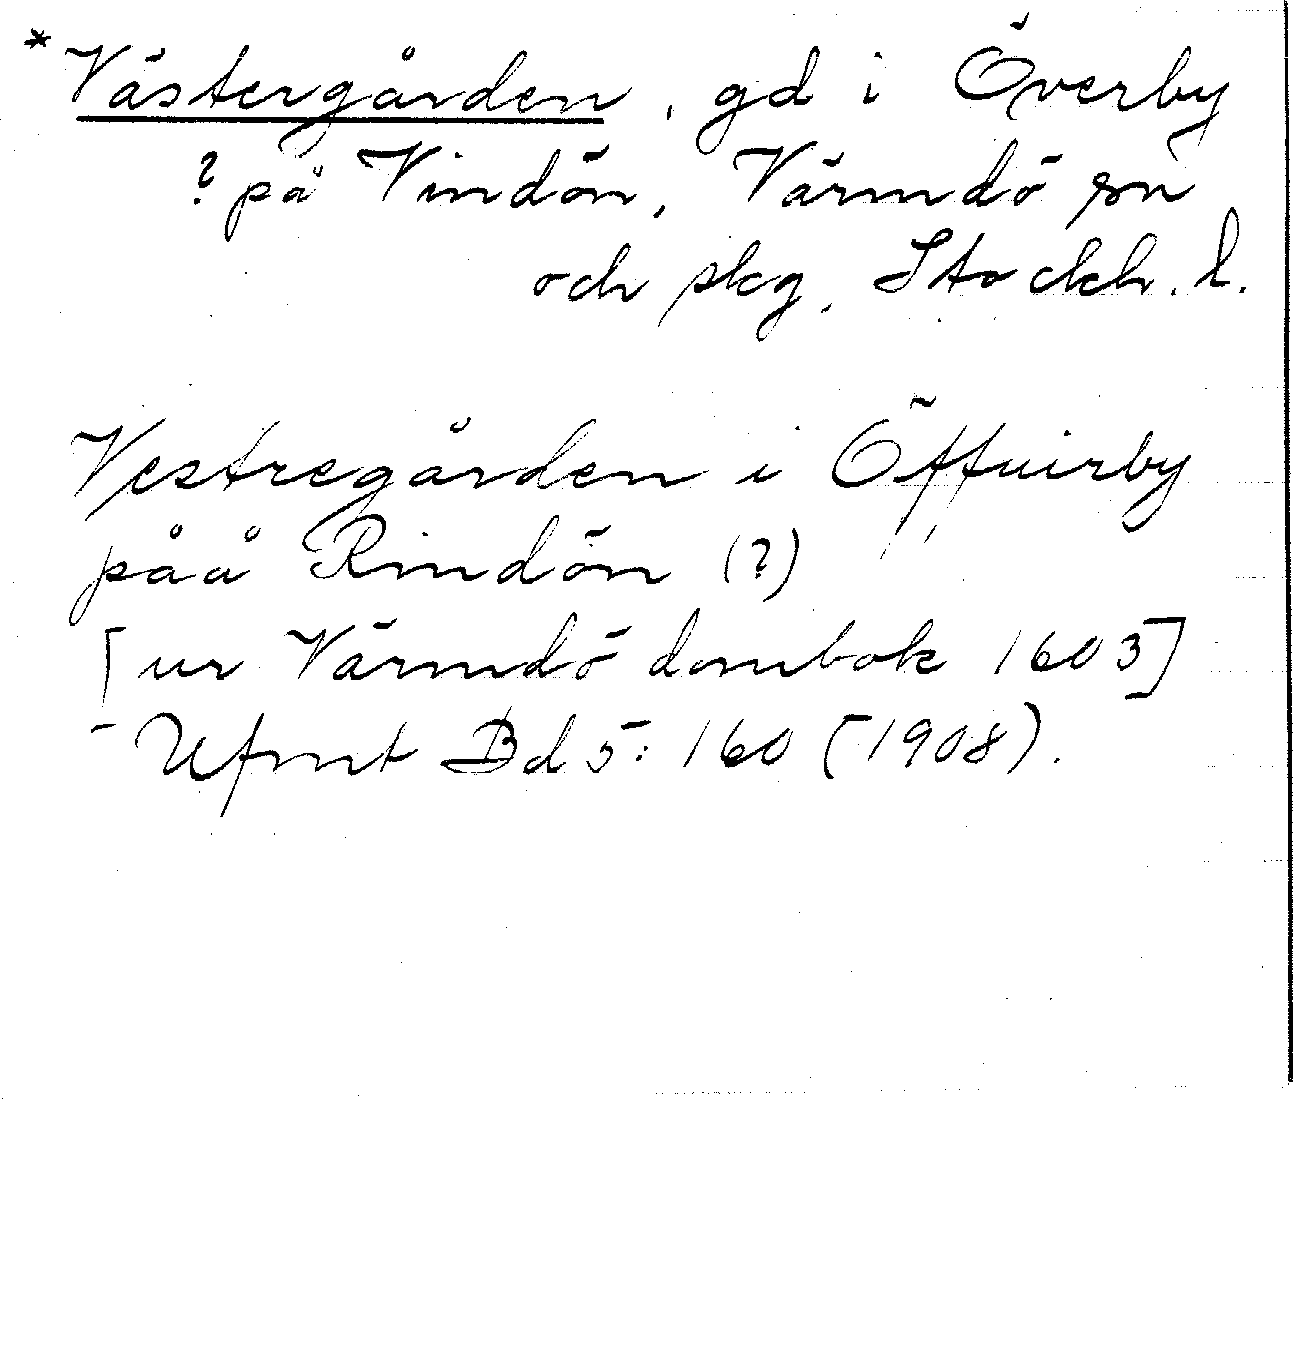 * Västergården, gd i Överby
? på Vindön, Värmdö sn
och skg, Stockh. l.
Vestregården i Öffuirby
påå Rindön (?)
[ur Värmdö dombok 1603]
- Ufmt Bd 5: 160 (1908).